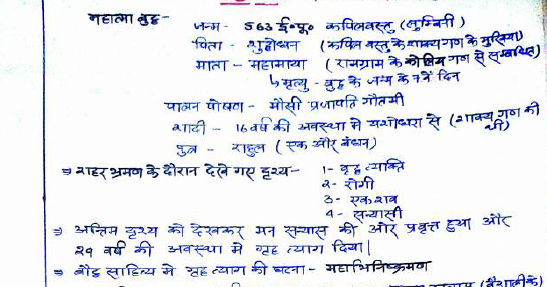 महात्मा बुद्ध -
जन्म - 563 ई०पू० कपिलवस्तु (लुम्बिनी)
पिता - शुद्धोधन (कपिल वस्तु के शाक्य गण के मुखिया)
माता - महामाया (रामग्राम के कोलिय गण से सम्बंधित)
↳ मृत्यु - बुद्ध के जन्म के 7वें दिन
पालन पोषण - मौसी प्रजापति गौतमी
शादी - 16 वर्ष की अवस्था मे यशोधरा से (शाक्य गण की थी)
पुत्र - राहुल (एक और बंधन)
⇒ शहर भ्रमण के दौरान देखे गए दृश्य - 1- वृद्ध व्यक्ति
2- रोगी
3- एक शव
4- सन्यासी
⇒ अन्तिम दृश्य को देखकर मन सन्यास की ओर प्रवृत्त हुआ और
29 वर्ष की अवस्था मे गृह त्याग दिया।
⇒ बौद्ध साहित्य मे गृह त्याग की घटना - महाभिनिष्क्रमण
(वैशाली के)